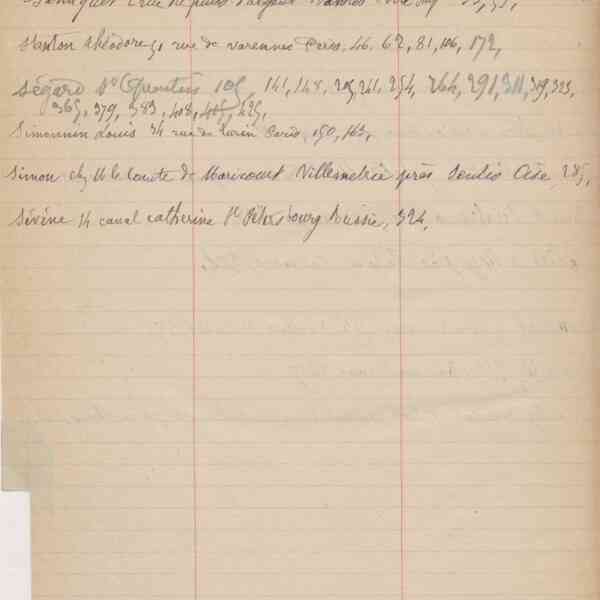 rue de
Stanton théodore 51 rue de varennes Paris, 46, 62, 81, 106, 172,
Ségard St Quentin 105, 141, 148, 205, 241, 254, 264, 291, 311, 319, 323,
365, 379, 383, 408, 425,
Simonnin Louis 34 rue de turin Paris, 150, 163,
Simon chez M le Comte de Maricourt Villemétrie près Senlis Oise, 285,
Sévine 14 canal catherine St Pétersbourg Russie, 324,